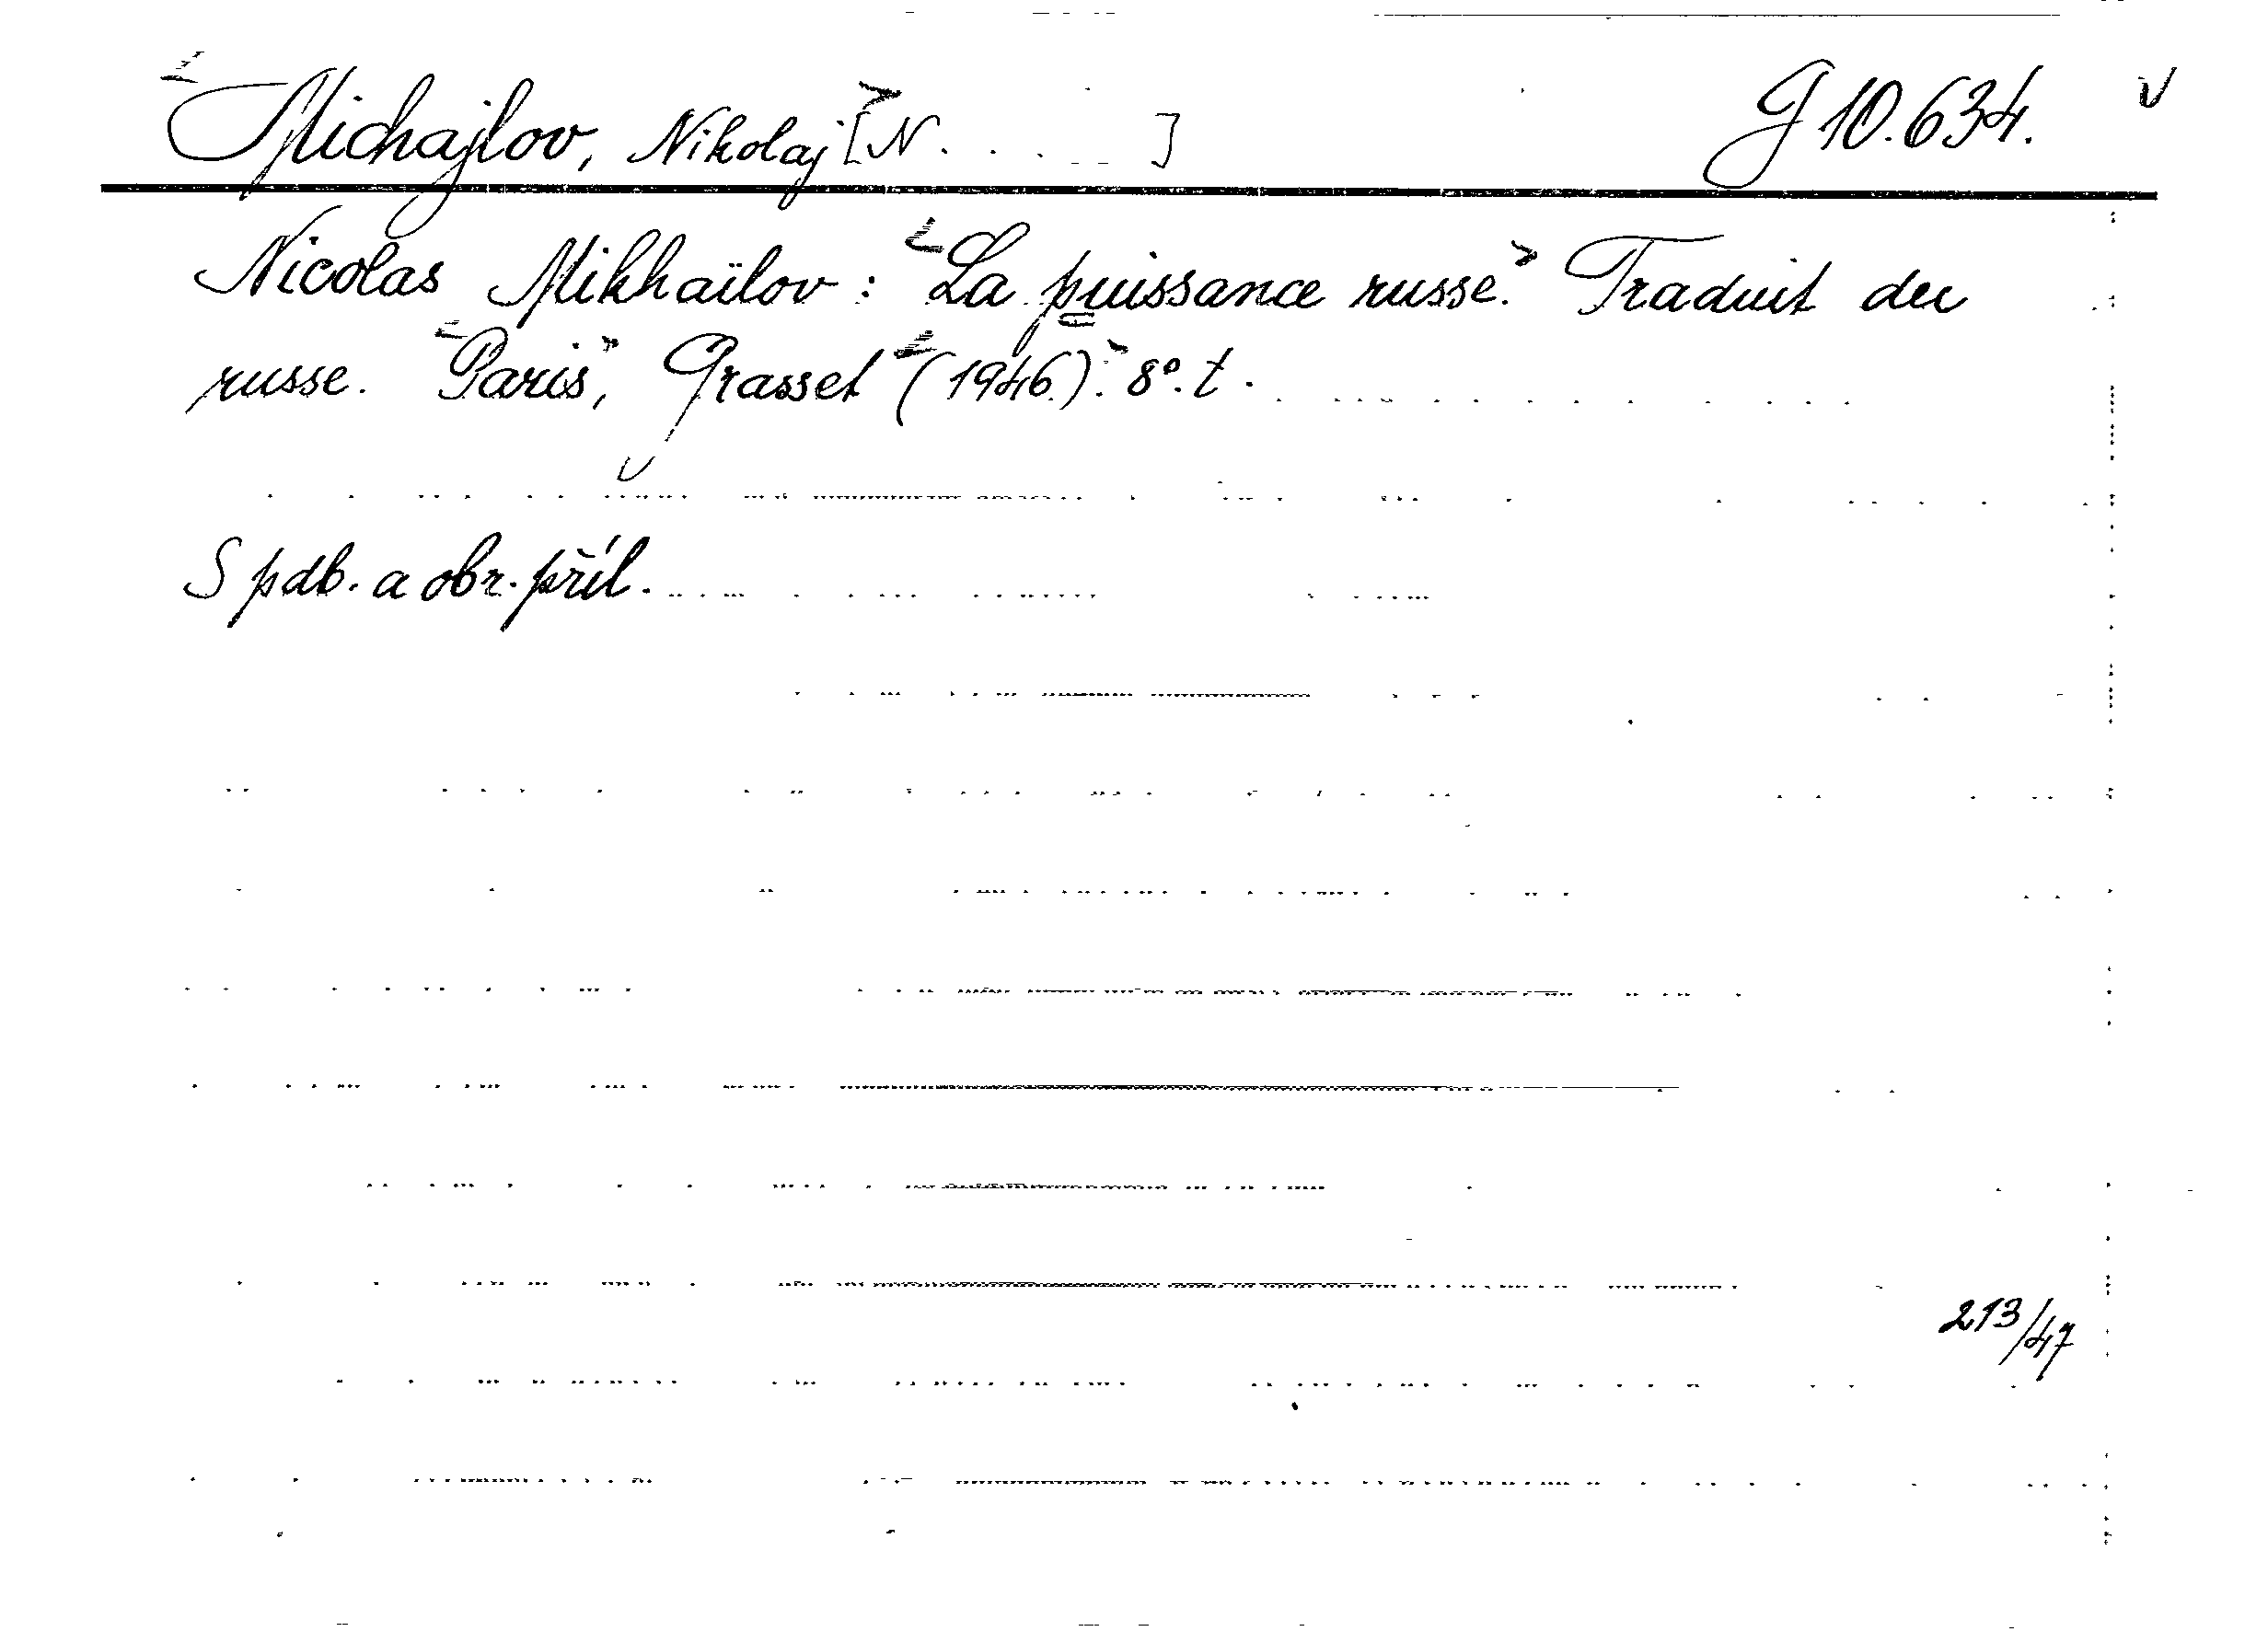 Michajlov, Nikolaj [N. . . . ] J 10.634.
Nicolas Mikhaïlov: La puissance russe. Traduit du
russe. Paris, Grasset (1946). 8°. t.
S pdb. a obr. příl.
213/47